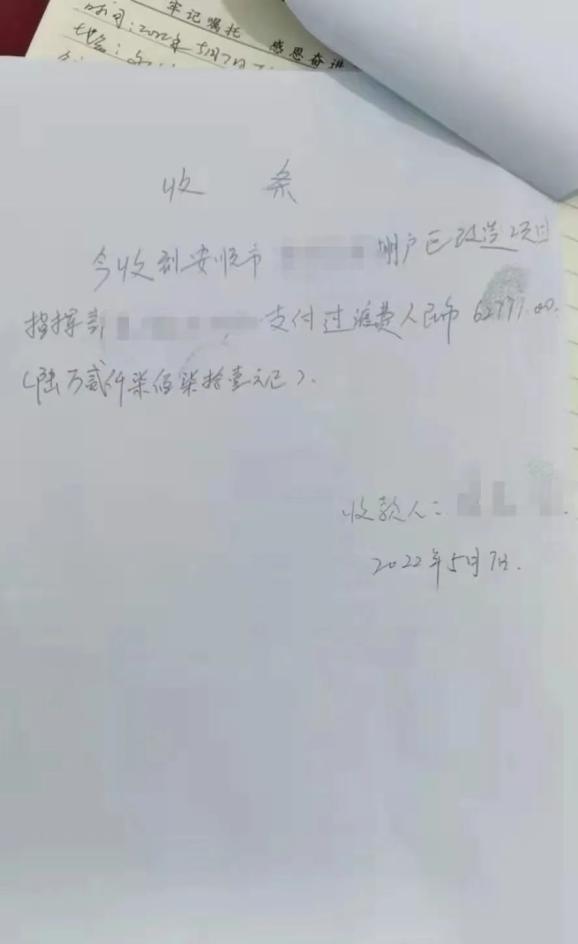 牢记嘱托 感恩奋进
时间:2022年5月7日
收 条
今收到安顺市 棚户区改造项目
指挥部 支付过渡费人民币 62771.00.
(陆万贰仟柒佰柒拾壹元正).
收款人:
2022年5月7日.